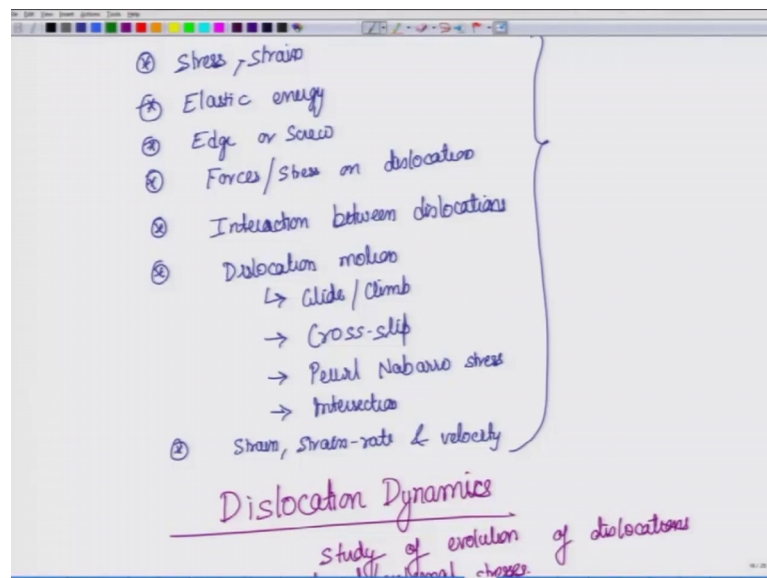 Stress, Strain
Elastic energy
Edge or Screw
Forces/Stress on dislocation
Interaction between dislocations
Dislocation motion
↳ Glide/Climb
→ Cross-slip
→ Peierl Nabarro stress
→ Intersection
Strain, Strain-rate & velocity
Dislocation Dynamics
study of evolution of dislocations
stresses.